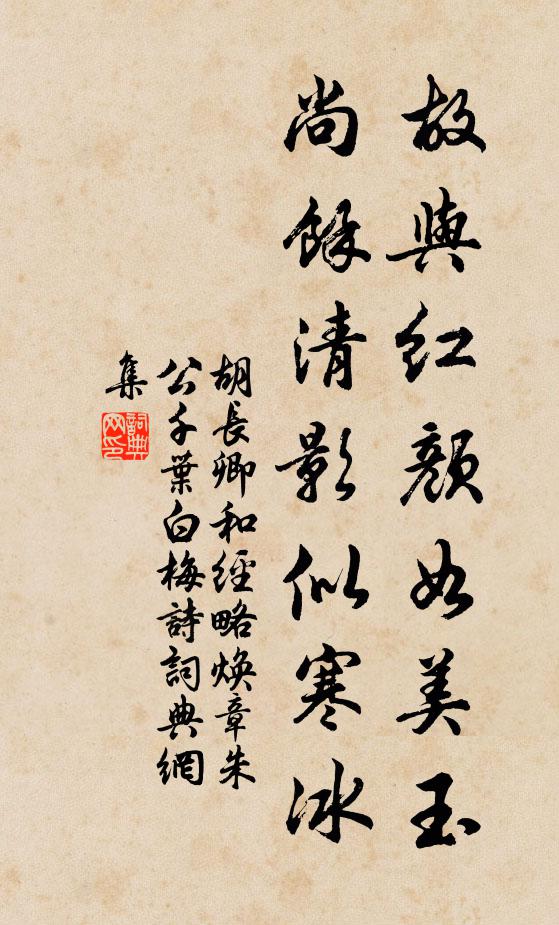 故與紅顏如美玉
尚餘清影似寒冰
胡長卿和經略煥章朱
公千葉白梅詩詞典網
集
詞典
网印